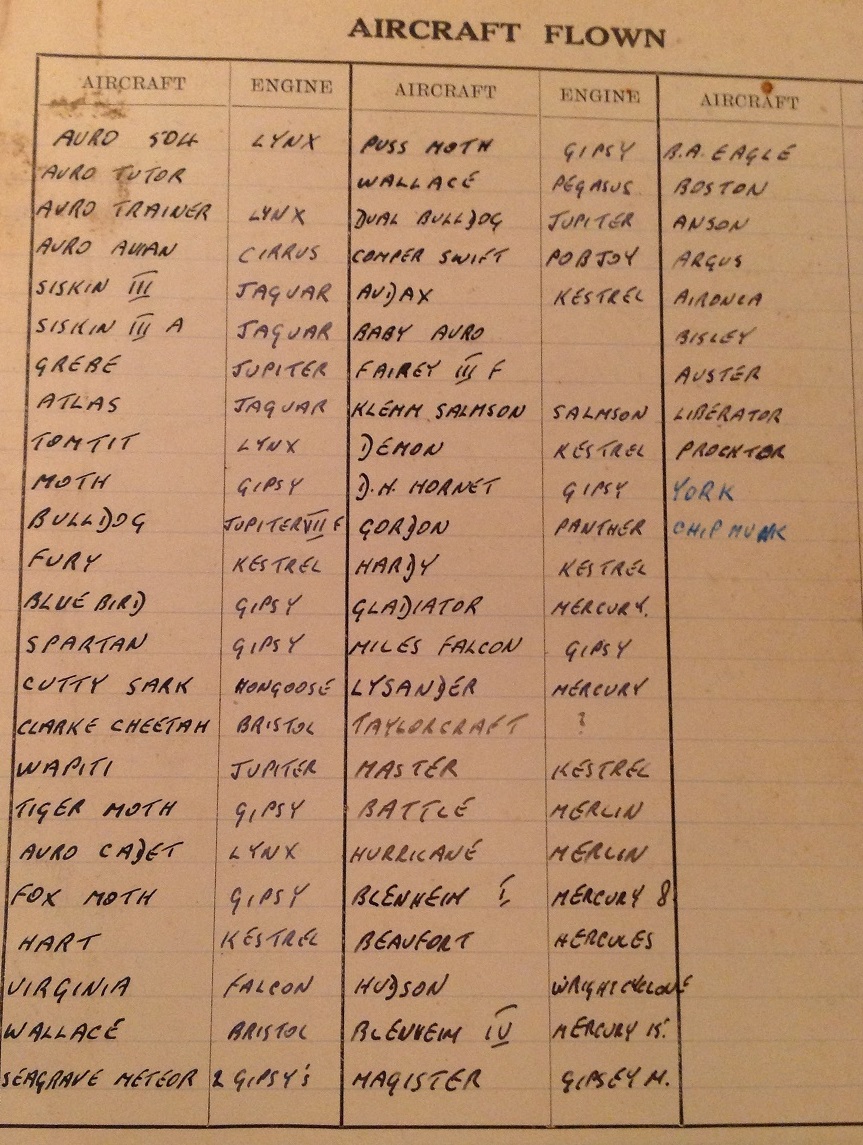 AIRCRAFT FLOWN
AIRCRAFT ENGINE AIRCRAFT ENGINE AIRCRAFT
AVRO 504 LYNX PUSS MOTH GIPSY B.A. EAGLE
AVRO TUTOR WALLACE PEGASUS BOSTON
AVRO TRAINER LYNX DUAL BULLDOG JUPITER ANSON
AVRO AVIAN CIRRUS COMPER SWIFT POBJOY ARGUS
SISKIN III JAGUAR AUDAX KESTREL AIRONCA
SISKIN III A JAGUAR BABY AVRO BISLEY
GREBE JUPITER FAIREY III F AUSTER
ATLAS JAGUAR KLEMM SALMSON SALMSON LIBERATOR
TOMTIT LYNX DEMON KESTREL PROCKTOR
MOTH GIPSY D.H. HORNET GIPSY YORK
BULLDOG JUPITER VII F GORDON PANTHER CHIPMUNK
FURY KESTREL HARDY KESTREL
BLUE BIRD GIPSY GLADIATOR MERCURY.
SPARTAN GIPSY MILES FALCON GIPSY
CUTTY SARK MONGOOSE LYSANDER MERCURY
CLARKE CHEETAH BRISTOL TAYLORCRAFT ?
WAPITI JUPITER MASTER KESTREL
TIGER MOTH GIPSY BATTLE MERLIN
AVRO CADET LYNX HURRICANE MERLIN
FOX MOTH GIPSY BLENHEIM I MERCURY 8
HART KESTREL BEAUFORT HERCULES
VIRGINIA FALCON HUDSON WRIGHT CYCLONE
WALLACE BRISTOL BLENHEIM IV MERCURY 15.
SEAGRAVE METEOR 2 GIPSY'S MAGISTER GIPSEY M.